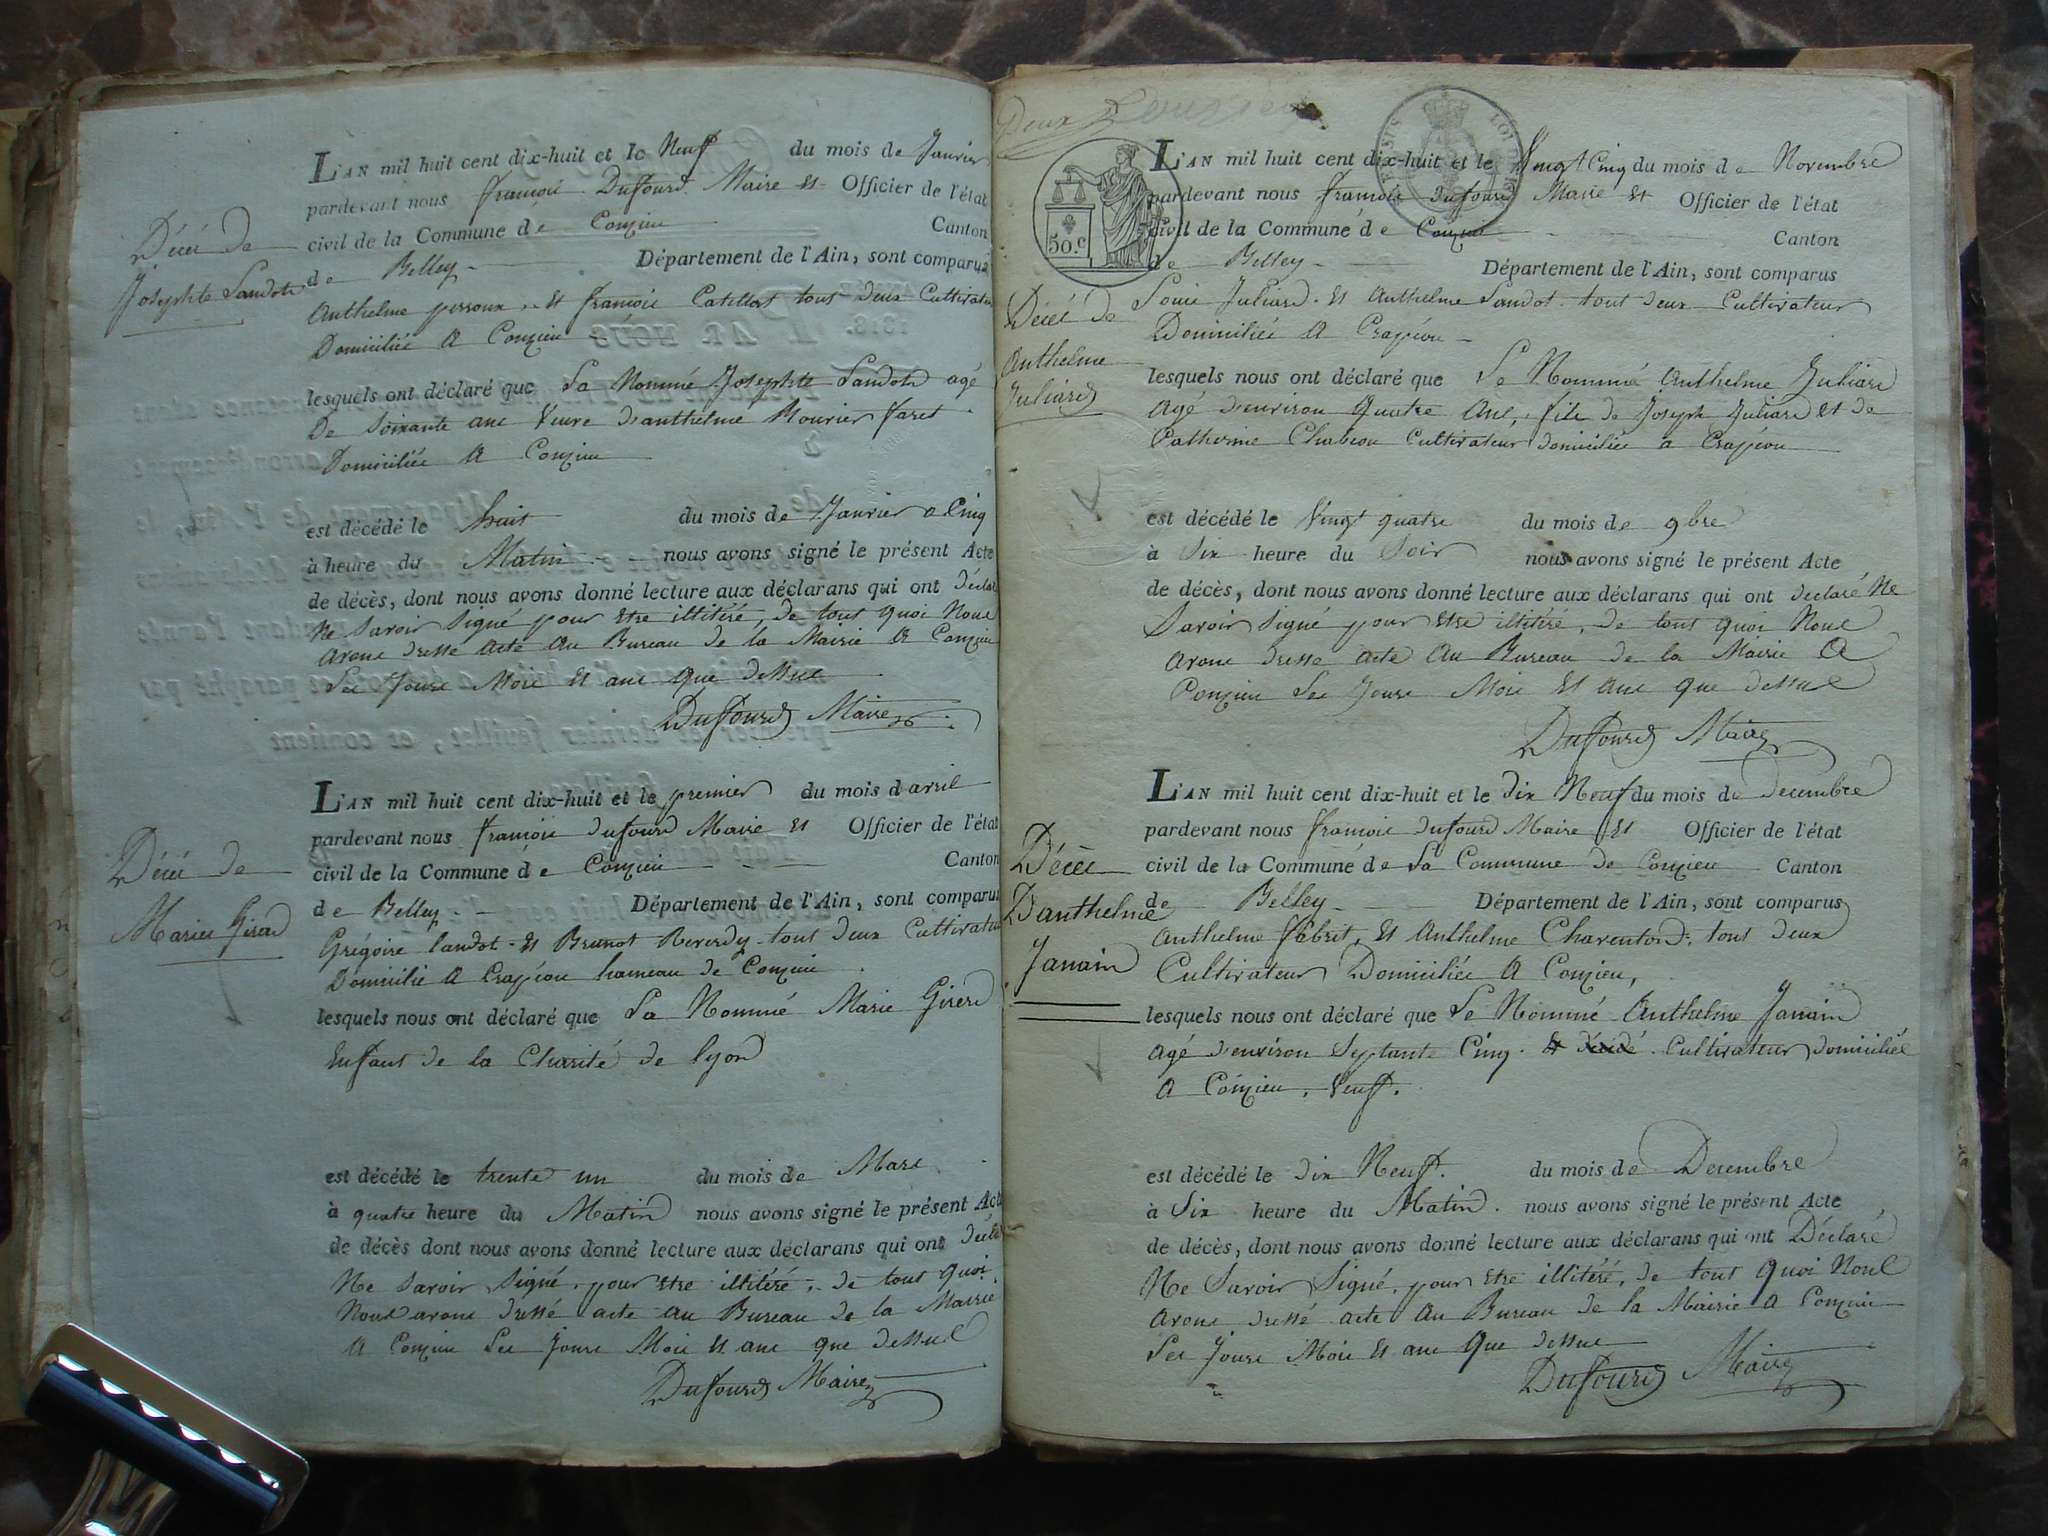 L'AN mil huit cent dix-huit et le Neuf du mois de Janvier
pardevant nous françois Dufourd Maire Et Officier de l'état
civil de la Commune de Conzieu Canton
Décéé de
de Belley Département de l'Ain, sont comparus
Josephte Landot
Anthelme perroux Et françois Catillot tout deux Cultivateur
Domiciliée A Conzieu
lesquels ont déclaré que La Nommé Josephte Landot agé
De Soixante ans Veuve d'anthelme Bourier
Domiciliée A Conzieu
est décédé le huit du mois de Janvier a Cinq
à heure du Matin nous avons signé le présent Acte
de décès, dont nous avons donné lecture aux déclarans qui ont Déclaré
Ne Savoir Signé pour Etre illitéré, de tout quoi Nous
avons dressé acte Au Bureau de la Mairie A Conzieu
Les Jours Mois Et ans Que dessus
Dufourd Maire
L'AN mil huit cent dix-huit et le premier du mois d'avril
pardevant nous françois dufourd Maire Et Officier de l'état
Décéé de
civil de la Commune de Conzieu Canton
de Belley Département de l'Ain, sont comparus
Marie Girerd
Grégoire landot Et Brunot Reverdy tout deux Cultivateur
Domicilié A Crapéou hameau de Conzieu
lesquels nous ont déclaré que La Nommé Marie Girerd
Enfant de la Charité de lyon
est décédé le trente un du mois de Mars
à quatre heure du Matin nous avons signé le présent Acte
de décès dont nous avons donné lecture aux déclarans qui ont déclaré
Ne Savoir Signé pour Etre illitéré, de tout quoi
Nous avons dressé acte au Bureau de la Mairie
A Conzieu Les Jours Mois Et ans que dessus
Dufourd Maire
Deux
50.c
L'AN mil huit cent dix-huit et le Vingt Cinq du mois de Novembre
pardevant nous françois dufourd Maire Et Officier de l'état
civil de la Commune de Conzieu Canton
de Belley Département de l'Ain, sont comparus
Décéé de
Anthelme
Juliard
Louis Juliard Et Anthelme Landot tout deux Cultivateur
Domiciliée A Crapéou
lesquels nous ont déclaré que Le Nommé Anthelme Juliard
Agé d'environ Quatre Ans, fils de Joseph Juliard et de
Catherine Chabeou Cultivateur domiciliée a Crapéou
est décédé le Vingt quatre du mois de 9bre
à Six heure du Soir nous avons signé le présent Acte
de décès, dont nous avons donné lecture aux déclarans qui ont déclaré Ne
Savoir Signé pour Etre illitéré, de tout quoi Nous
avons dressé acte Au Bureau de la Mairie A
Conzieu Les Jours Mois Et ans que dessus
Dufourd Maire
L'AN mil huit cent dix-huit et le dix Neuf du mois de Decembre
pardevant nous françois dufourd Maire Et Officier de l'état
civil de la Commune de La Commune de Conzieu Canton
Décée
D'anthelme
Janain
de Belley Département de l'Ain, sont comparus
Anthelme fabrit, Et Anthelme Charentord tout deux
Cultivateur Domiciliée A Conzieu,
lesquels nous ont déclaré que Le Nommé Anthelme Janain
Agé d'environ Septante Cinq Cultivateur domiciliée
A Conzieu, Veuff.
est décédé le dix Neuff. du mois de Decembre
à Six heure du Matin. nous avons signé le présent Acte
de décès, dont nous avons donné lecture aux déclarans qui ont Déclaré
Ne Savoir Signé, pour Etre illitéré, de tout quoi Nous
avons dressé acte Au Bureau de la Mairie A Conzieu
Les Jours Mois Et ans Que dessus
Dufourd Maire